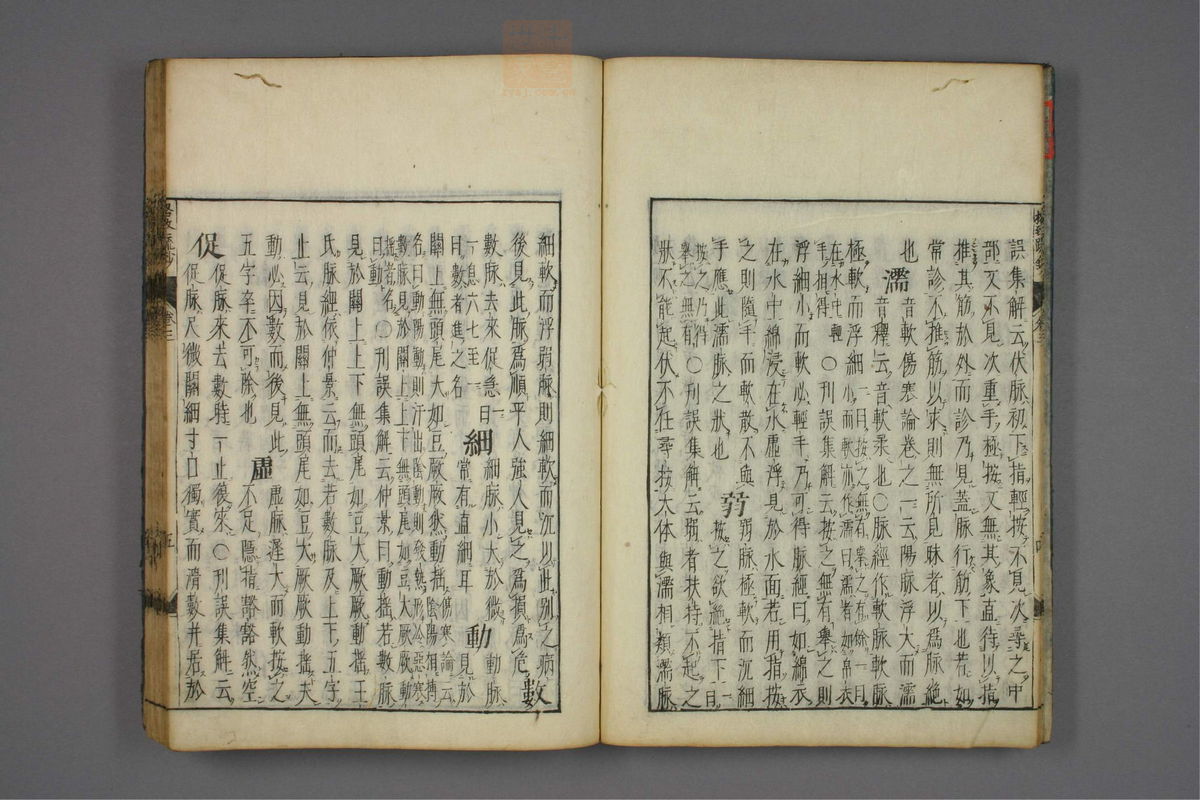 誤集解云伏脉初下指輕按不見次尋之中
部又不見次重手極按又無其象直待以指
推其筋於外而診乃見蓋脉行筋下也若如
常診不推筋以求則無所見昧者以爲脉絶
也 濡 音軟傷寒論卷之一云陽脉浮大而濡
音釋云音軟柔也○脉經作軟脉軟脉
極軟而浮細
一曰按之無有舉之有餘一曰
小而軟亦作濡曰濡者如帛衣
在水中輕
手相得
○刊誤集解云按之無有舉之則
浮細小而軟必輕手乃可得脉經曰如綿衣
在水中綿浸在水虚浮見於水面若用指按
之則隨手而軟散不與
手應此濡脉之狀也
弱 弱脉極軟而沉細
按之欲絶指下一曰
按之乃得
舉之無有
○刊誤集解云弱者扶持不起之
狀不能起伏不在尋按大体與濡相類濡脉
細軟而浮弱脉則細軟而沉以此別之病
後見此脉爲順平人強人見之爲損爲危 數
數脉去來促急
一曰
一息六七至一
曰數者進之名
細 細脉小大於微
常有直細耳
動 動脉
見於
關上無頭尾大如豆厥厥然動揺
傷寒論云
陰陽相搏
名曰動陽動則汗出陰動則發熱形冷惡寒
數脉見於關上上下無頭尾如豆大厥厥動
揺者名
曰動
○刊誤集解云仲景曰動揺若數脉
見於關上上下無頭尾如豆大厥厥動揺王
氏脉經依仲景云而去若數脉及上下五字
止云見於關上無頭尾如豆大厥厥動揺夫
動必因數而後見此
五字卒不可除也
虚 虚脉遲大而軟按之
不足隱指豁豁然空
促 促脉來去數時一止復來○刊誤集解云
促脉尺微關細寸口獨實而滑數并居於